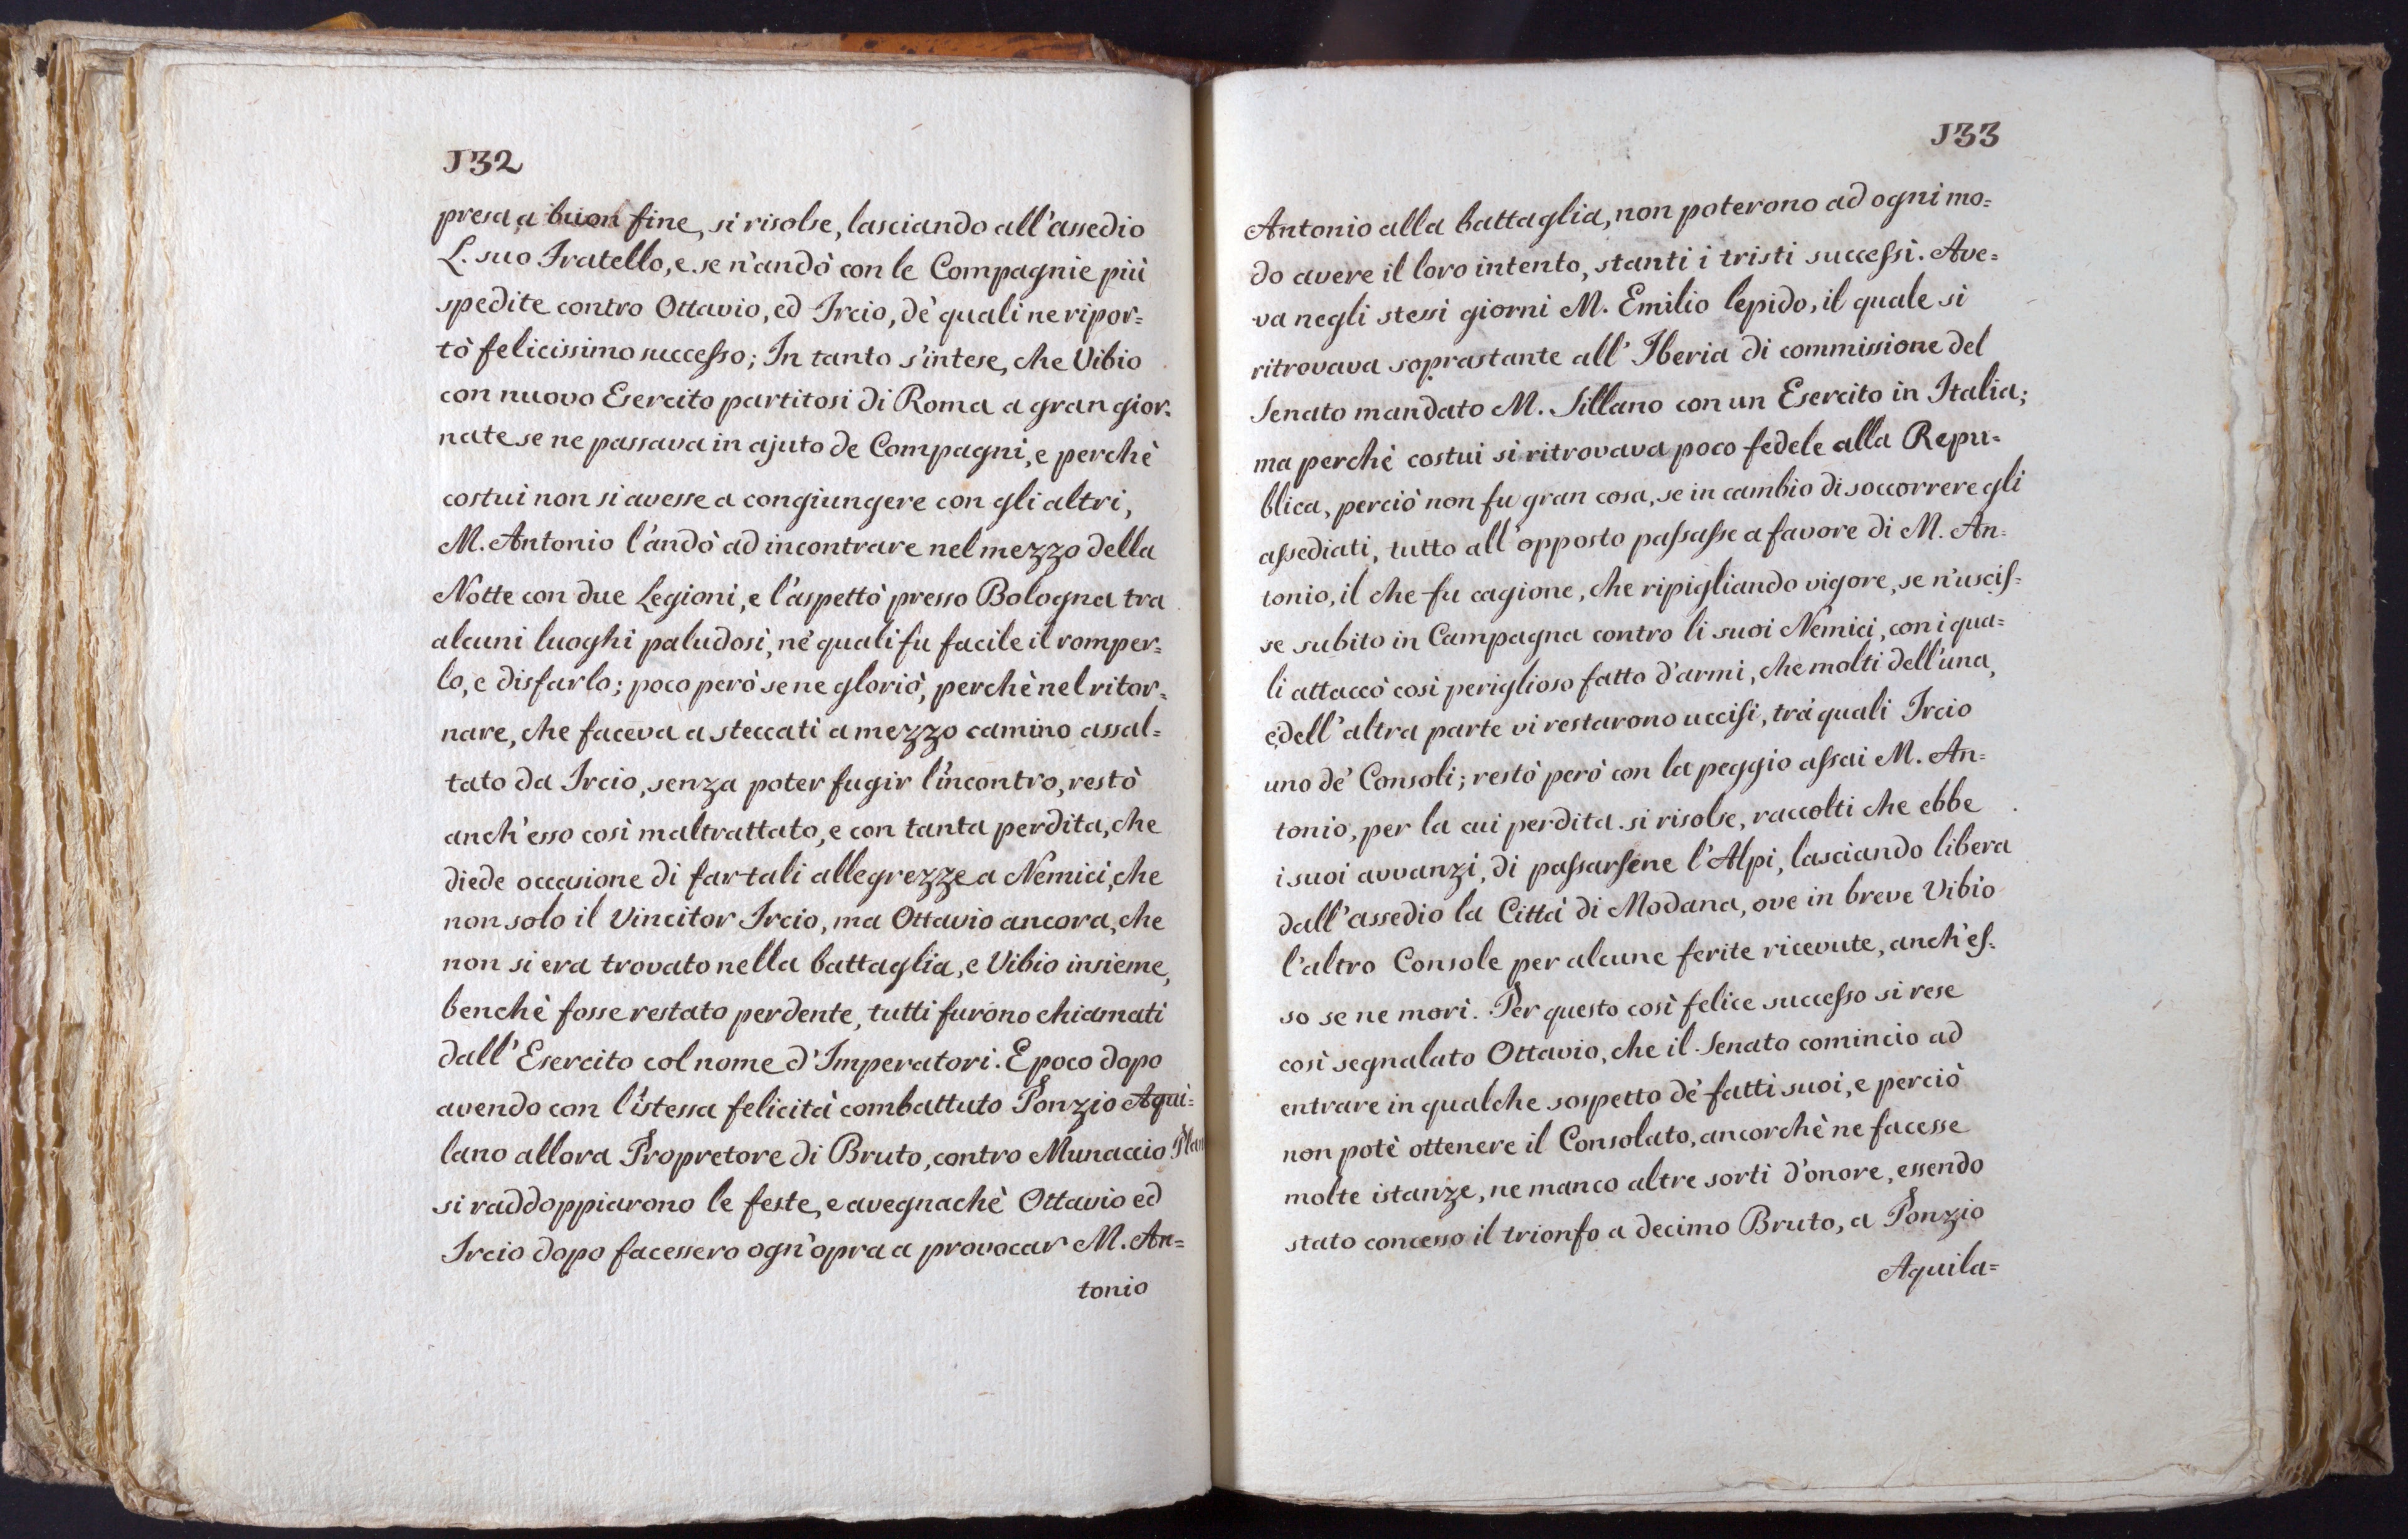 132
presa a buon fine, si risolse, lasciando all'assedio
L. suo Fratello, e se n'andò con le Compagnie più
spedite contro Ottavio, ed Ircio, de' quali ne ripor=
tò felicissimo successo; In tanto s'intese, che Vibio
con nuovo Esercito partitosi di Roma a gran gior=
nate se ne passava in ajuto de Compagni, e perchè
costui non si avesse a congiungere con gli altri,
M. Antonio l'andò ad incontrare nel mezzo della
Notte con due Legioni, e l'aspettò presso Bologna tra
alcuni luoghi paludosi, ne' quali fu facile il romper=
lo, e disfarlo; poco però se ne gloriò, perchè nel ritor=
nare, che faceva a steccati a mezzo camino assal=
tato da Ircio, senza poter fugir l'incontro, restò
anch'esso così maltrattato, e con tanta perdita, che
diede occasione di far tali allegrezze a Nemici, che
non solo il Vincitor Ircio, ma Ottavio ancora, che
non si era trovato nella battaglia, e Vibio insieme,
benchè fosse restato perdente, tutti furono chiamati
dall'Esercito col nome d'Imperatori. E poco dopo
avendo con l'istessa felicità combattuto Ponzio Aqui=
lano allora Propretore di Bruto, contro Munaccio
si raddoppiarono le feste, e avegnachè Ottavio ed
Ircio dopo facessero ogn'opra a provocar M. An=
tonio
133
Antonio alla battaglia, non poterono ad ogni mo=
do avere il loro intento, stanti i tristi successi. Ave=
va negli stessi giorni M. Emilio lepido, il quale si
ritrovava soprastante all'Iberia di commissione del
Senato mandato M. Sillano con un Esercito in Italia;
ma perchè costui si ritrovava poco fedele alla Repu=
blica, perciò non fu gran cosa, se in cambio di soccorrere gli
assediati, tutto all'opposto passasse a favore di M. An=
tonio, il che fu cagione, che ripigliando vigore, se n'uscis=
se subito in Campagna contro li suoi Nemici, con i qua=
li attaccò così periglioso fatto d'armi, che molti dell'una,
e dell'altra parte vi restarono uccisi, trà quali Ircio
uno de' Consoli; restò però con la peggio assai M. An=
tonio, per la cui perdita si risolse, raccolti che ebbe
i suoi avvanzi, di passarsene l'Alpi, lasciando libera
dall'assedio la Città di Modana, ove in breve Vibio
l'altro Console per alcune ferite ricevute, anch'es=
so se ne morì. Per questo così felice successo si rese
così segnalato Ottavio, che il Senato comincio ad
entrare in qualche sospetto de' fatti suoi, e perciò
non potè ottenere il Consolato, ancorchè ne facesse
molte istanze, ne manco altre sorti d'onore, essendo
stato concesso il trionfo a decimo Bruto, a Ponzio
Aquila=